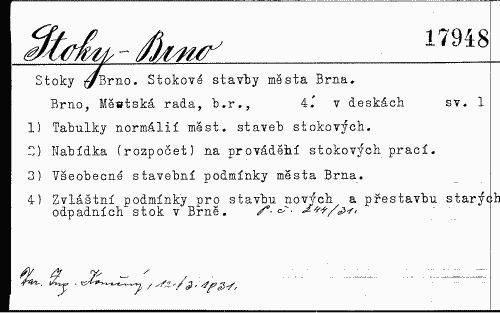 Stoky - Brno
17948
Stoky - Brno. Stokové stavby města Brna.
Brno, Městská rada, b.r., 4° v deskách sv. 1
1) Tabulky normálií měst. staveb stokových.
2) Nabídka (rozpočet) na provádění stokových prací.
3) Všeobecné stavební podmínky města Brna.
4) Zvláštní podmínky pro stavbu nových a přestavbu starých
odpadních stok v Brně. P.č. 244/31.
Ing. 12/3.1931.